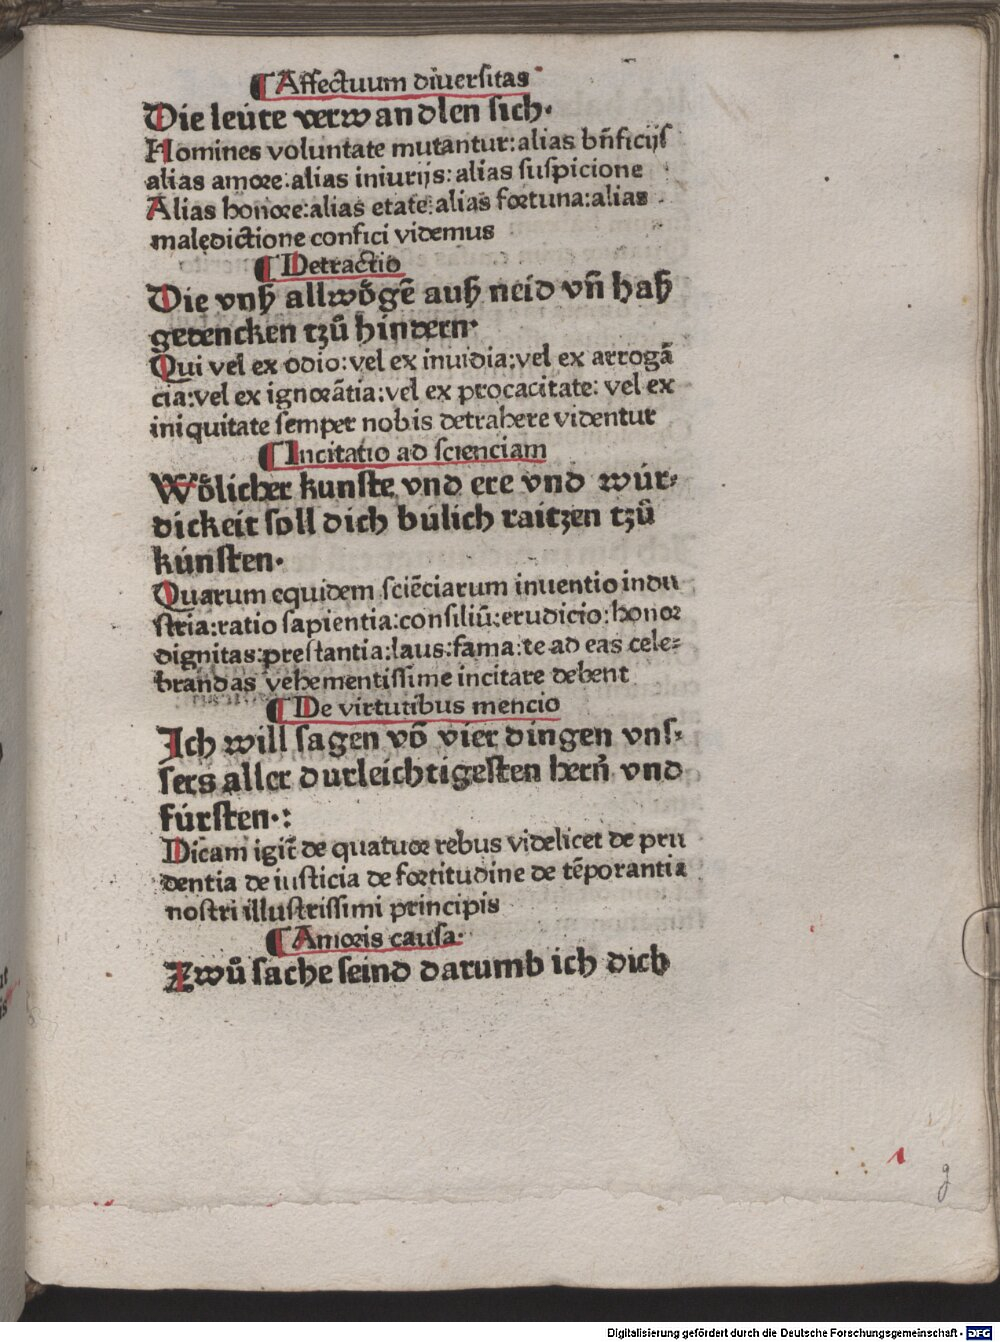 ¶ Affectuum diuersitas
Die leúte verwandlen sich·
Homines voluntate mutantur: alias bn̄ficijs
alias amore: alias iniurijs: alias suspicione
Alias honore: alias etate: alias fortuna: alias
malędictione confici videmus
¶ Detractio
Die vnß allwo̊gē auß neid vn̄ haß
gedencken tzů hindern·
Qui vel ex odio: vel ex inuidia: vel ex arrogā
cia: vel ex ignorātia: vel ex procacitate: vel ex
iniquitate semper nobis detrahere videntur
¶ Incitatio ad scienciam
Wo̊licher kunste vnd ere vnd wúr⸗
dickeit soll dich búlich raitzen tzů
kúnsten·
Quarum equidem sciēciarum inuentio indu
stria: ratio sapientia: consiliū: erudicio: honor
dignitas: prestantia: laus: fama: te ad eas cele⸗
brandas vehementissime incitare debent
¶ De virtutibus mencio
Ich will sagen vō vier dingen vns⸗
sers aller durleichtigesten hern̄ vnd
fúrsten·:
Dicam igit̄ de quatuor rebus videlicet de pru
dentia de iusticia de fortitudine de tēporantia
nostri illustrissimi principis
¶ Amoris causa·
Zwů sache seind darumb ich dich
g
Digitalisierung gefördert durch die Deutsche Forschungsgemeinschaft - DFG